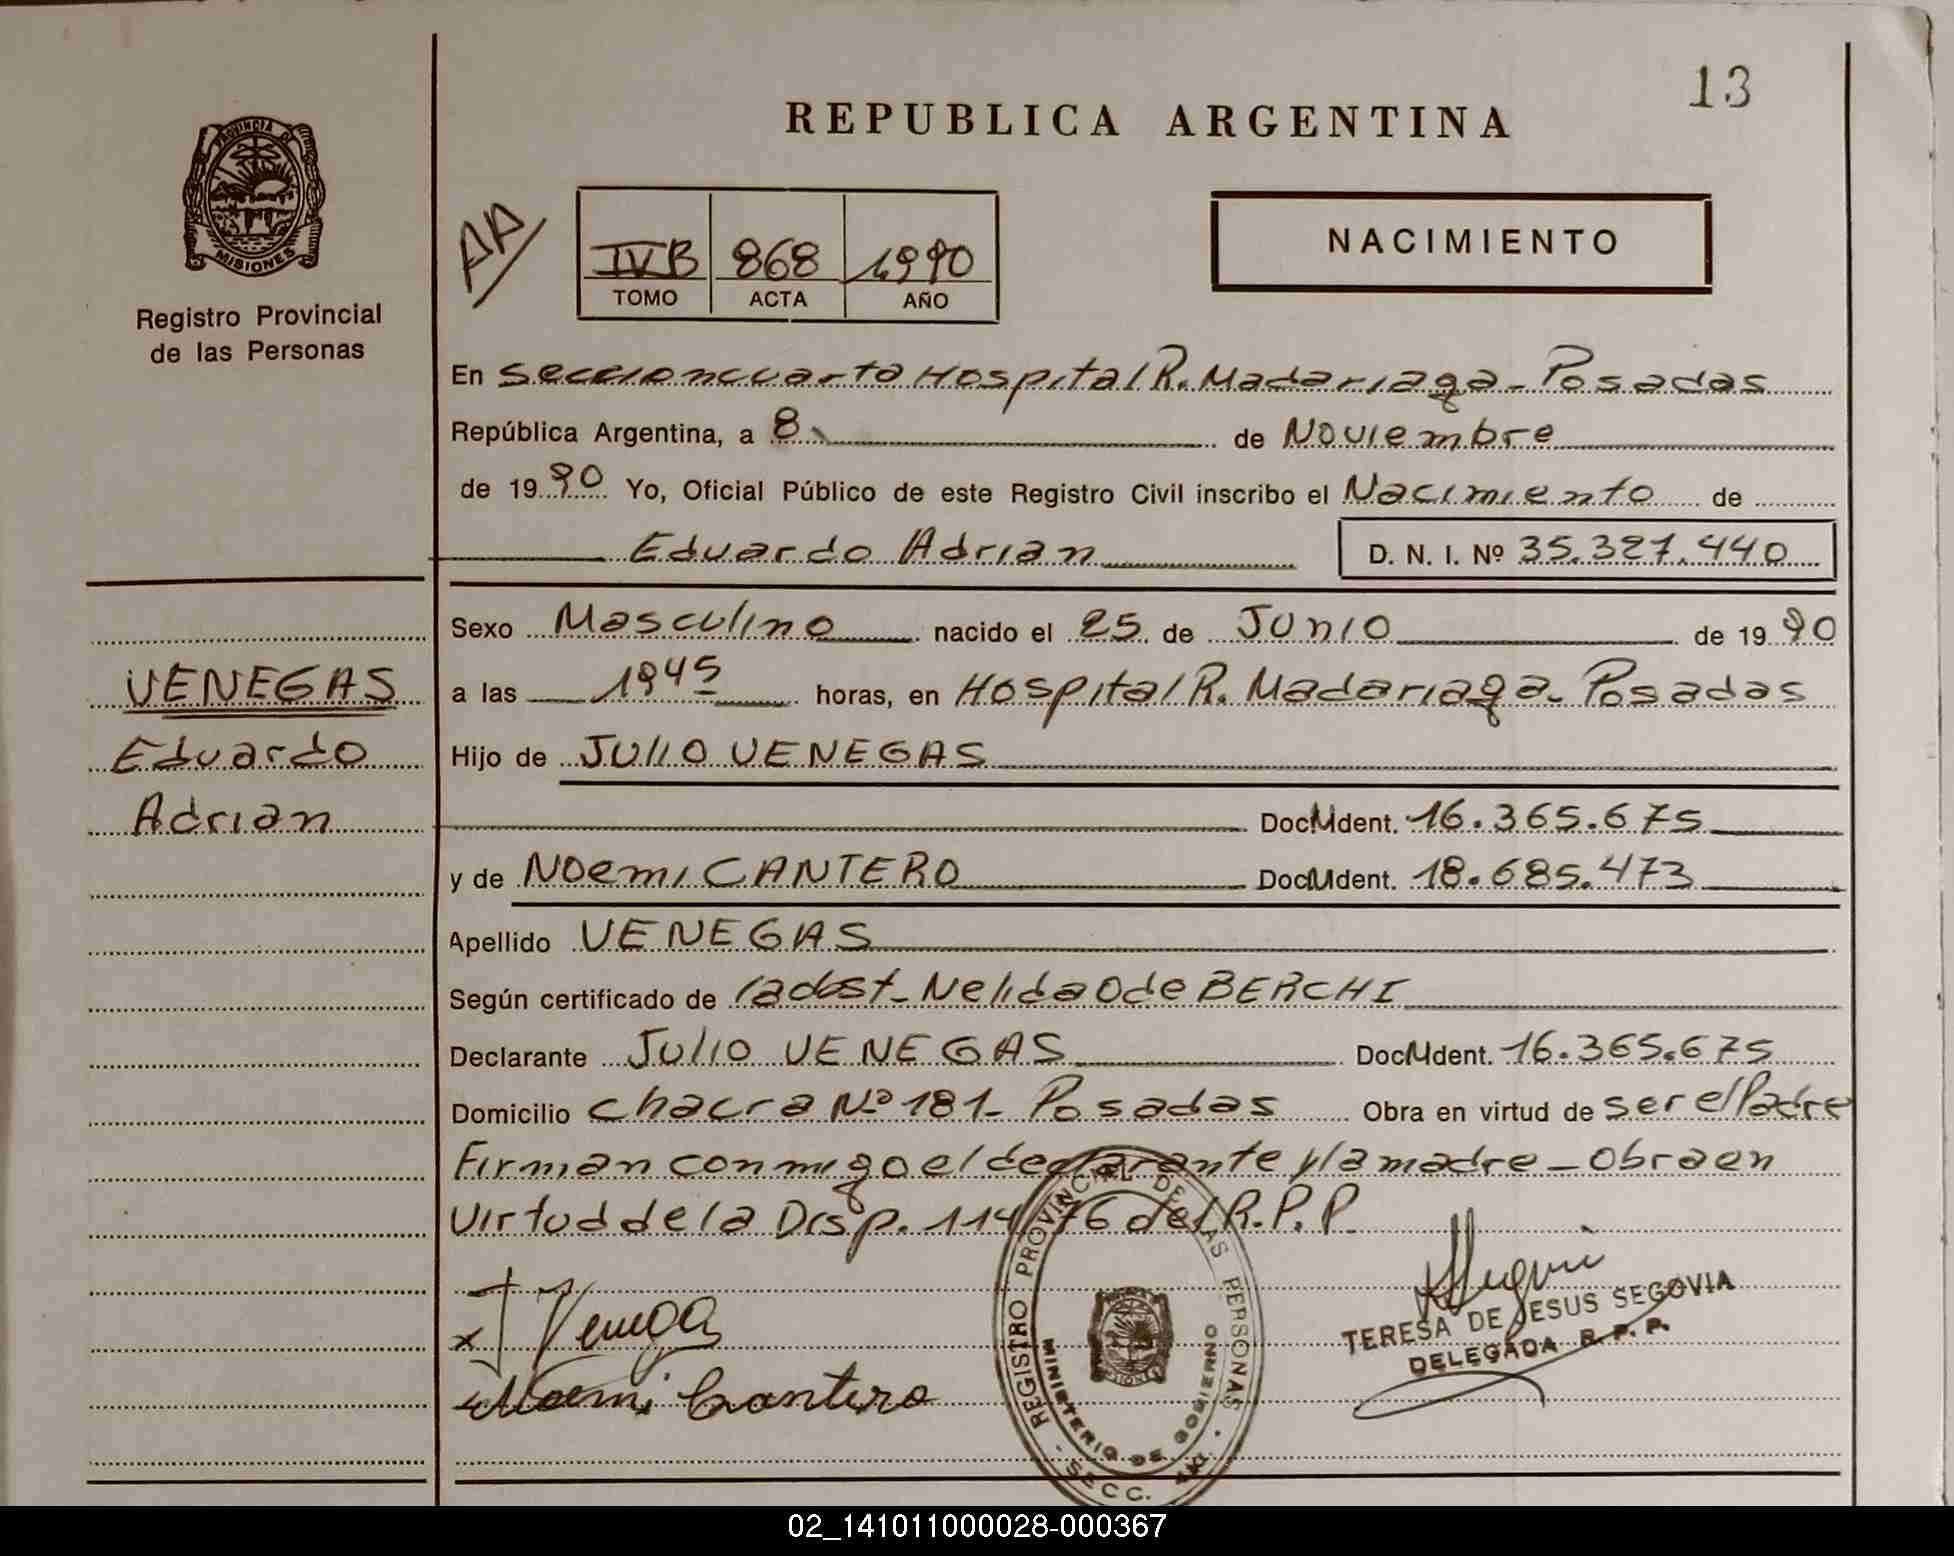 13
REPUBLICA ARGENTINA
PROVINCIA D
MISIONES
Registro Provincial
de las Personas
AA
IV B 868 1990
TOMO ACTA AÑO
NACIMIENTO
En Seccion cuarta Hospital R. Madariaga - Posadas
República Argentina, a 8 de Noviembre
de 1990 Yo, Oficial Público de este Registro Civil inscribo el Nacimiento de
Eduardo Adrian D. N. I. Nº 35.327.440
Sexo Masculino nacido el 25 de Junio de 1990
a las 1945 horas, en Hospital R. Madariaga - Posadas
Hijo de Julio VENEGAS
Doc. Ident. 16.365.675
y de Noemi CANTERO Doc. Ident. 18.685.473
Apellido VENEGAS
Según certificado de la obst - Nelida O de BERCHI
Declarante Julio VENEGAS Doc. Ident. 16.365.675
Domicilio chacra Nº 181 - Posadas Obra en virtud de ser el Padre
Firman conmigo el declarante y la madre - Obra en
virtud de la Disp. 114/76 del R.P.P.
VENEGAS
Eduardo
Adrian
x J Venega
Noemi Cantero
REGISTRO PROVINCIAL DE LAS PERSONAS
MINISTERIO DE GOBIERNO
SECC. 4ta.
TERESA DE JESUS SEGOVIA
DELEGADA R. P. P.
02_141011000028-000367